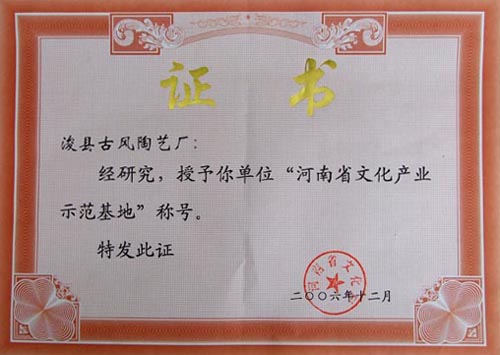 证书
浚县古风陶艺厂：
经研究，授予你单位“河南省文化产业
示范基地”称号。
特发此证
河南省文化厅
二〇〇六年十二月